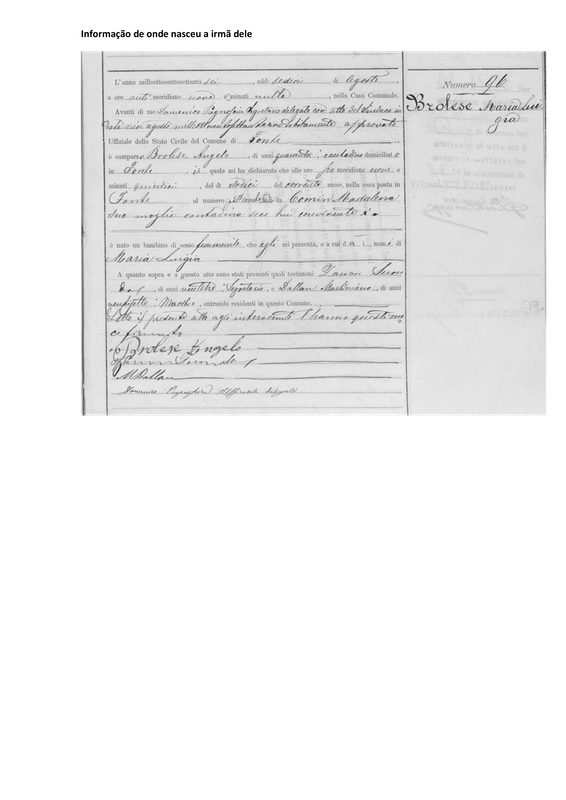 Informação de onde nasceu a irmã dele
Numero 96
Brolese Maria Lui
gia
L'anno millottocentosettanta sei, addì sedici di Agosto
a ore anti meridiane nove e minuti nulla, nella Casa Comunale.
Avanti di me Domenico Segretario delegato con atto del Sindaco in
data sei agosto debitamente approvato
Uffiziale dello Stato Civile del Comune di Fonte
è comparso Brolese Angelo, di anni quaranta, contadino domiciliato
in Fonte, il quale mi ha dichiarato che alle ore meridiane e
minuti quindici, del dì dodici del corrente mese, nella casa posta in
Fonte al numero, da Comin Maddalena
sua moglie contadina seco lui convivente
è nato un bambino di sesso femminile che egli mi presenta, e a cui dà i nomi di
Maria Luigia
A quanto sopra e a questo atto sono stati presenti quali testimoni
di anni ventitre, Segretario, e Dallan Marheniano, di anni
, entrambi residenti in questo Comune.
Letto il presente atto agli intervenuti l'hanno questi me
co firmato
Brolese Angelo
M Dallan
delegato